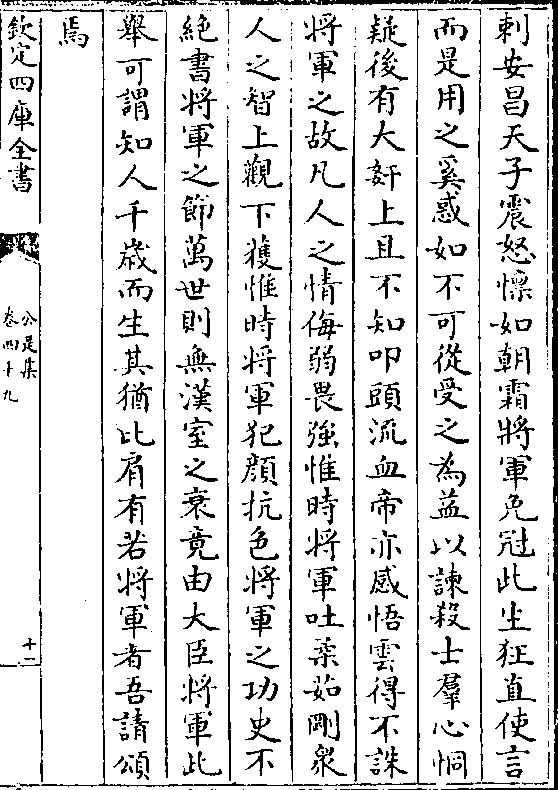 刺安昌天子震怒懍如朝霜將軍免冠此生狂直使言
而是用之奚惑如不可從受之為益以諫殺士羣心恫
疑後有大奸上且不知叩頭流血帝亦感悟雲得不誅
將軍之故凡人之情侮弱畏強惟時將軍吐柔茹剛衆
人之智上觀下獲惟時將軍犯顔抗色將軍之功史不
絶書將軍之節萬世則無漢室之衰竟由大臣將軍此
舉可謂知人千歳而生其猶比肩有若將軍者吾請頌
焉
欽定四庫全書
公是集
卷四十九
十一